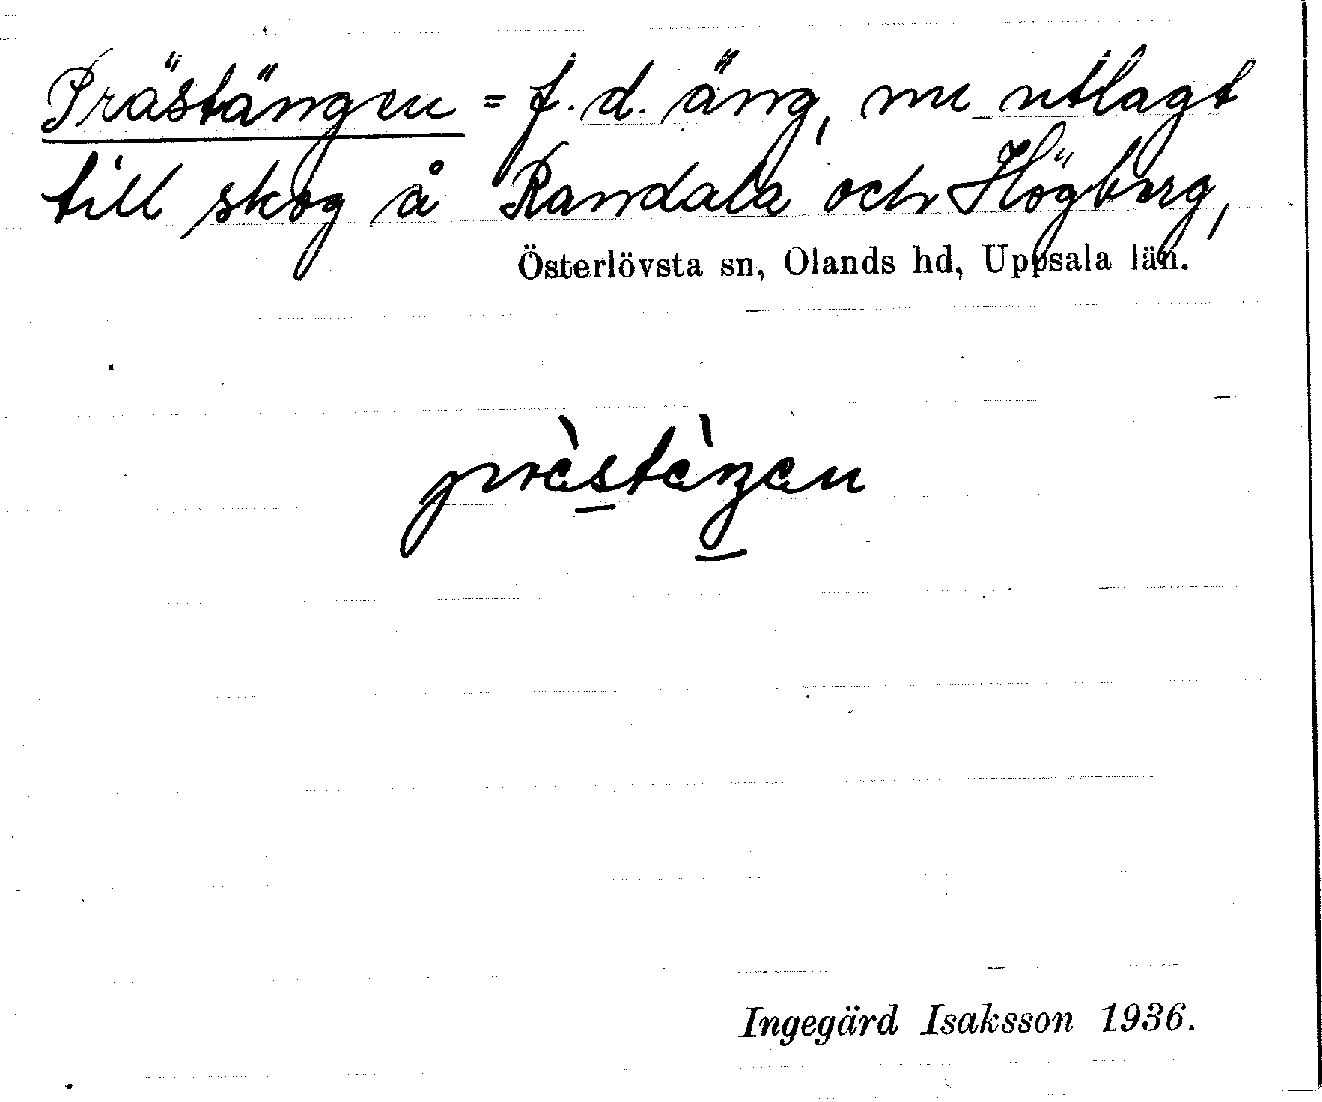 Prästängen = f. d. äng, nu utlagt
till skog å Randala och Högberg,
Österlövsta sn, Olands hd, Uppsala län.
prèstèŋen
Ingegärd Isaksson 1936.